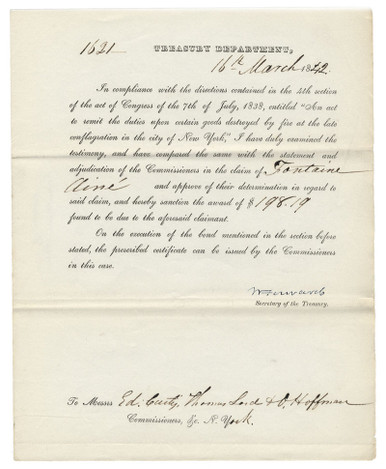 1621
TREASURY DEPARTMENT,
16th March 1842.
In compliance with the directions contained in the 4th section
of the act of Congress of the 7th of July, 1838, entitled "An act
to remit the duties upon certain goods destroyed by fire at the late
conflagration in the city of New York," I have duly examined the
testimony, and have compared the same with the statement and
adjudication of the Commissioners in the claim of Fontaine
Ainé and approve of their determination in regard to
said claim, and hereby sanction the award of $ 198.19
found to be due to the aforesaid claimant.
On the execution of the bond mentioned in the section before
stated, the prescribed certificate can be issued by the Commissioners
in this case.
W Forward
Secretary of the Treasury.
To Messrs Ed. Curtis, Thomas Lord & O. Hoffman
Commissioners, &c. N. York.